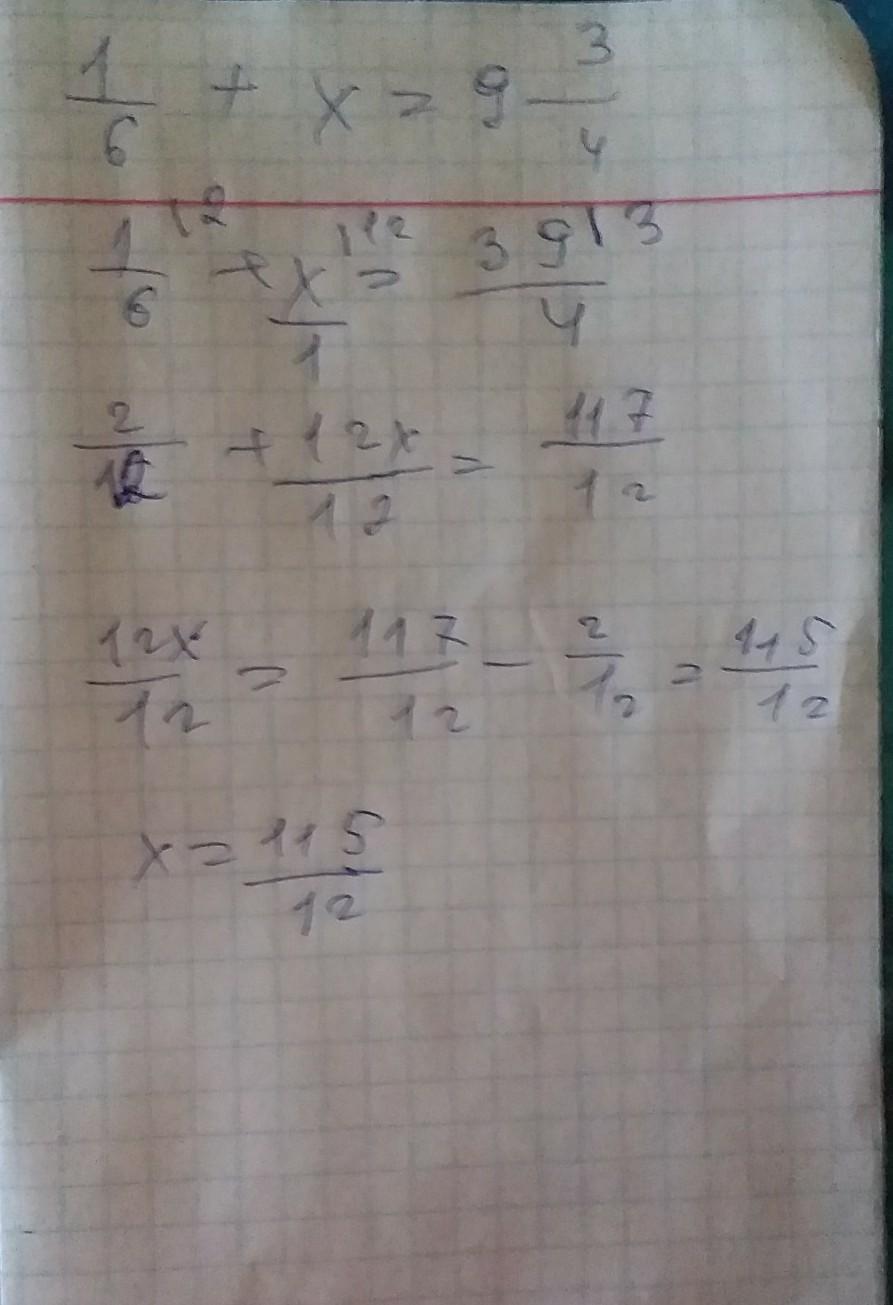 1/6 + x = 9 3/4
1/6 \2 + x/1 \12 = 39/4 \3
2/12 + 12x/12 = 117/12
12x/12 = 117/12 - 2/12 = 115/12
x = 115/12